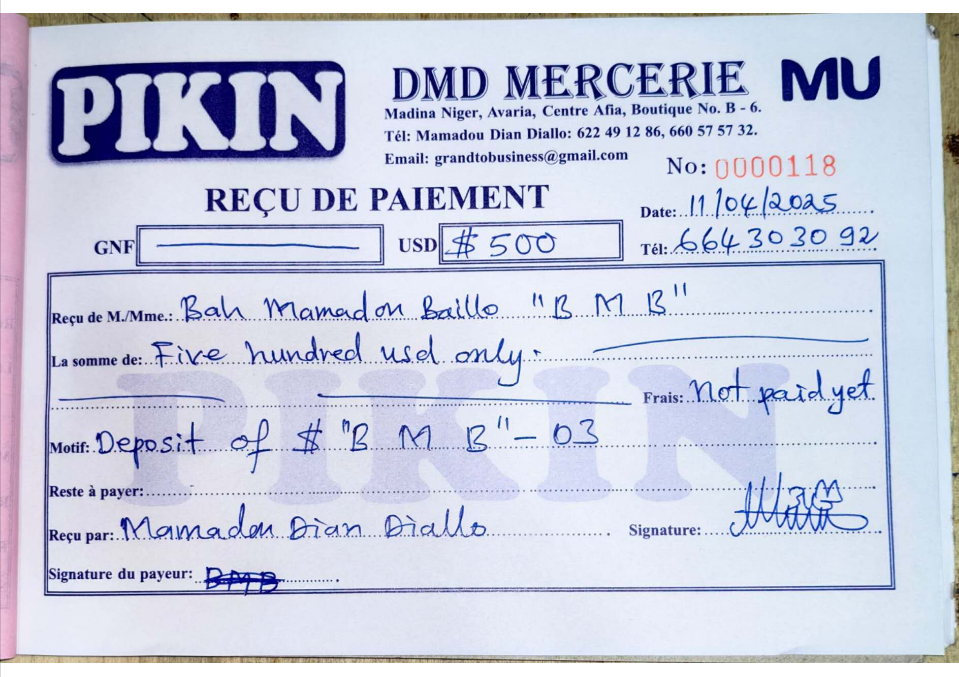 PIKIN
DMD MERCERIE
MU
Madina Niger, Avaria, Centre Afia, Boutique No. B - 6.
Tél: Mamadou Dian Diallo: 622 49 12 86, 660 57 57 32.
Email: grandtobusiness@gmail.com
No: 0000118
REÇU DE PAIEMENT
Date: 11/04/2025
GNF USD $ 500
Tél: 664 303 0 92
Reçu de M./Mme.: Bah Mamadou Baillo "B M B"
La somme de: Five hundred usd only.
Frais: Not paid yet
Motif: Deposit of $ "B M B" - 03
Reste à payer:
Reçu par: Mamadou Dian Diallo Signature:
Signature du payeur: BMB
PIKIN